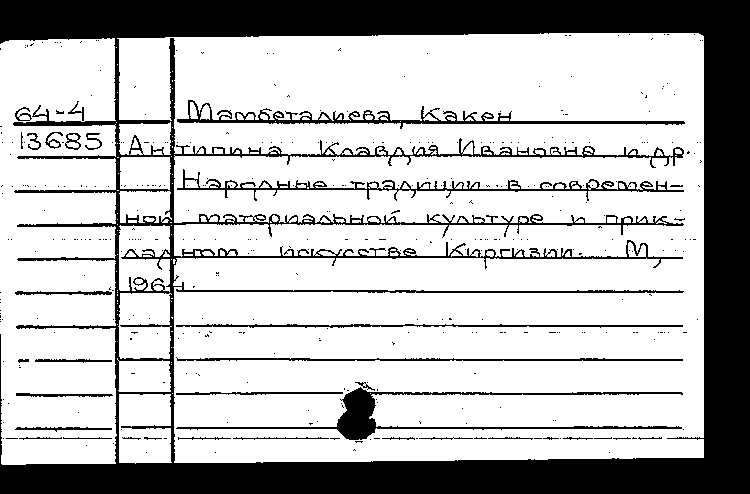 64-4 Мамбеталиева, Какен
13685 Антипина, Клавдия Ивановна и др.
Народные традиции в современ-
ной материальной культуре и прик-
ладном искусстве Киргизии. М,
1964.